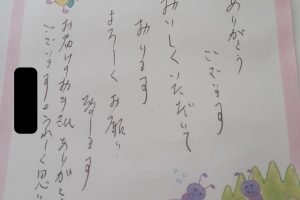 ありがとう
ございます
おいしくいただいて
おります
よろしくお願い
致します
お届けの お手紙ありがとう
ございます